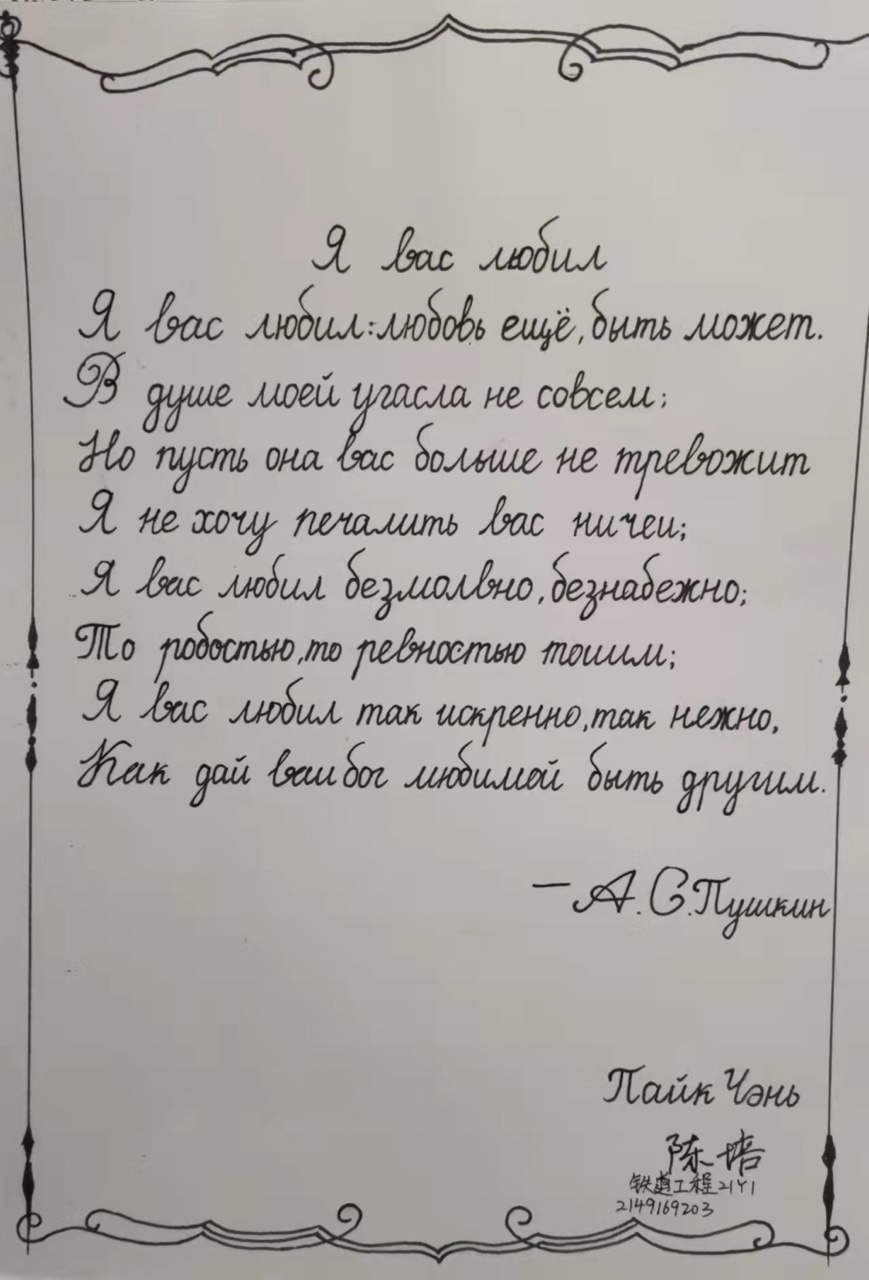 Я вас любил
Я вас любил: любовь ещё, быть может.
В душе моей угасла не совсем;
Но пусть она вас больше не тревожит
Я не хочу печалить вас ничеи;
Я вас любил безмолвно, безнабежно;
То робостью, то ревностью тоишм;
Я вас любил так искренно, так нежно,
Как дай ваи бог любимой быть другим.
— А. С. Пушкин
Пайк Чэнь
陈培
铁道工程21Y1
2149169203